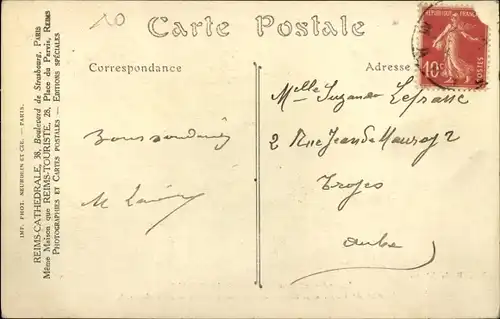 10
Carte Postale
Correspondance
Adresse
RÉPUBLIQUE FRANÇAISE
10c
POSTES
Melle Suzanne Lefranc
2 Rue Jean de Mauroy 2
Troyes
Aube
M
REIMS-CATHEDRALE, 38, Boulevard de Strasbourg, PARIS
Même Maison que REIMS-TOURISTE, 28, Place du Parvis, REIMS
PHOTOGRAPHIES ET CARTES POSTALES — EDITIONS SPÉCIALES
IMP. PHOT. NEURDEIN ET CIE. — PARIS.